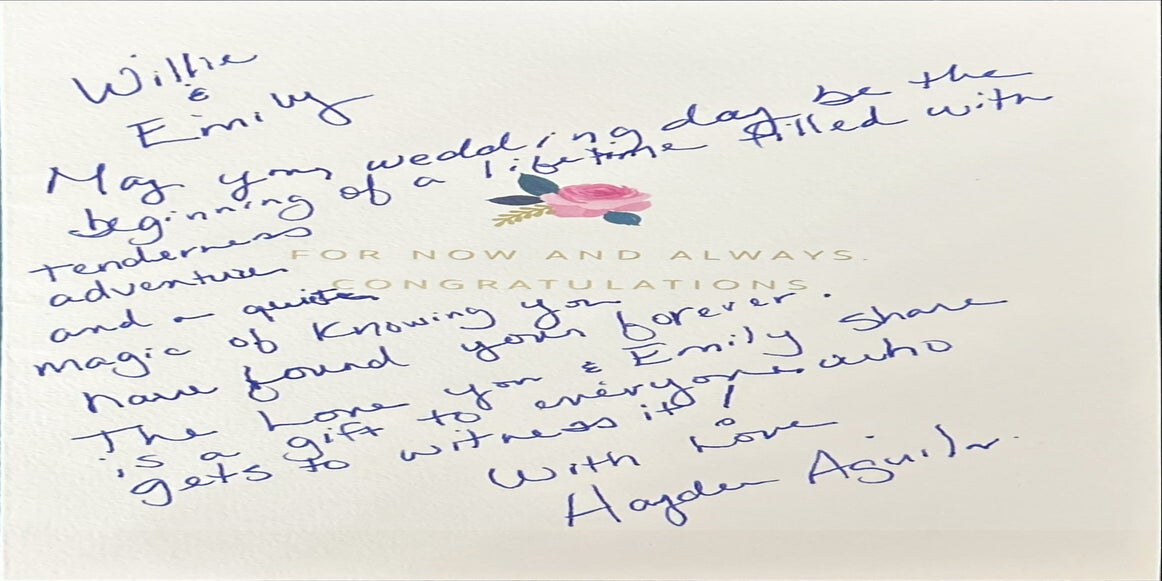 Willie
&
Emily
May your wedding day be the
beginning of a lifetime filled with
tenderness
FOR NOW AND ALWAYS.
adventure
CONGRATULATIONS
and a quiet
magic of knowing you
have found your forever.
The Love you & Emily share
is a gift to everyone who
gets to witness it!
With Love
Hayden Aguilar